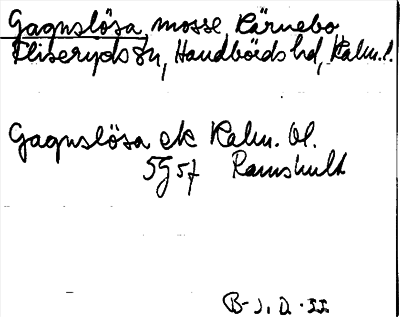 Gagnslösa, mosse Kärnebo
Fliseryds sn, Handbörds hd, Kalm. l.
Gagnslösa ek Kalm. bl.
5G57 Ramshult
B-J. D. II